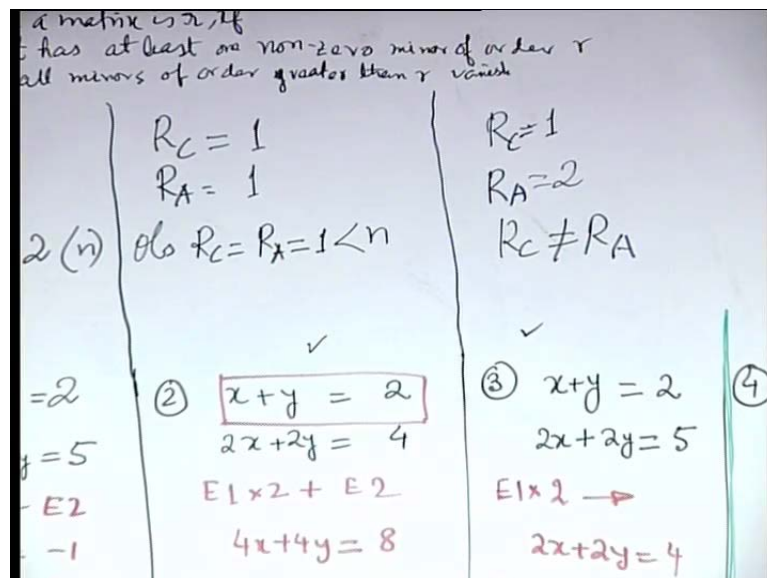 a matrix is r, if
has at least one non-zero minor of order r
all minors of order greater than r vanish
2 (n)
=2
y = 5
- E2
- -1
R_C = 1
R_A = 1
R_C = R_A = 1 < n
✓
② x + y = 2
2x + 2y = 4
E1 × 2 + E2
4x + 4y = 8
R_C = 1
R_A = 2
R_C ≠ R_A
✓
③ x + y = 2
2x + 2y = 5
E1 × 2 →
2x + 2y = 4
④